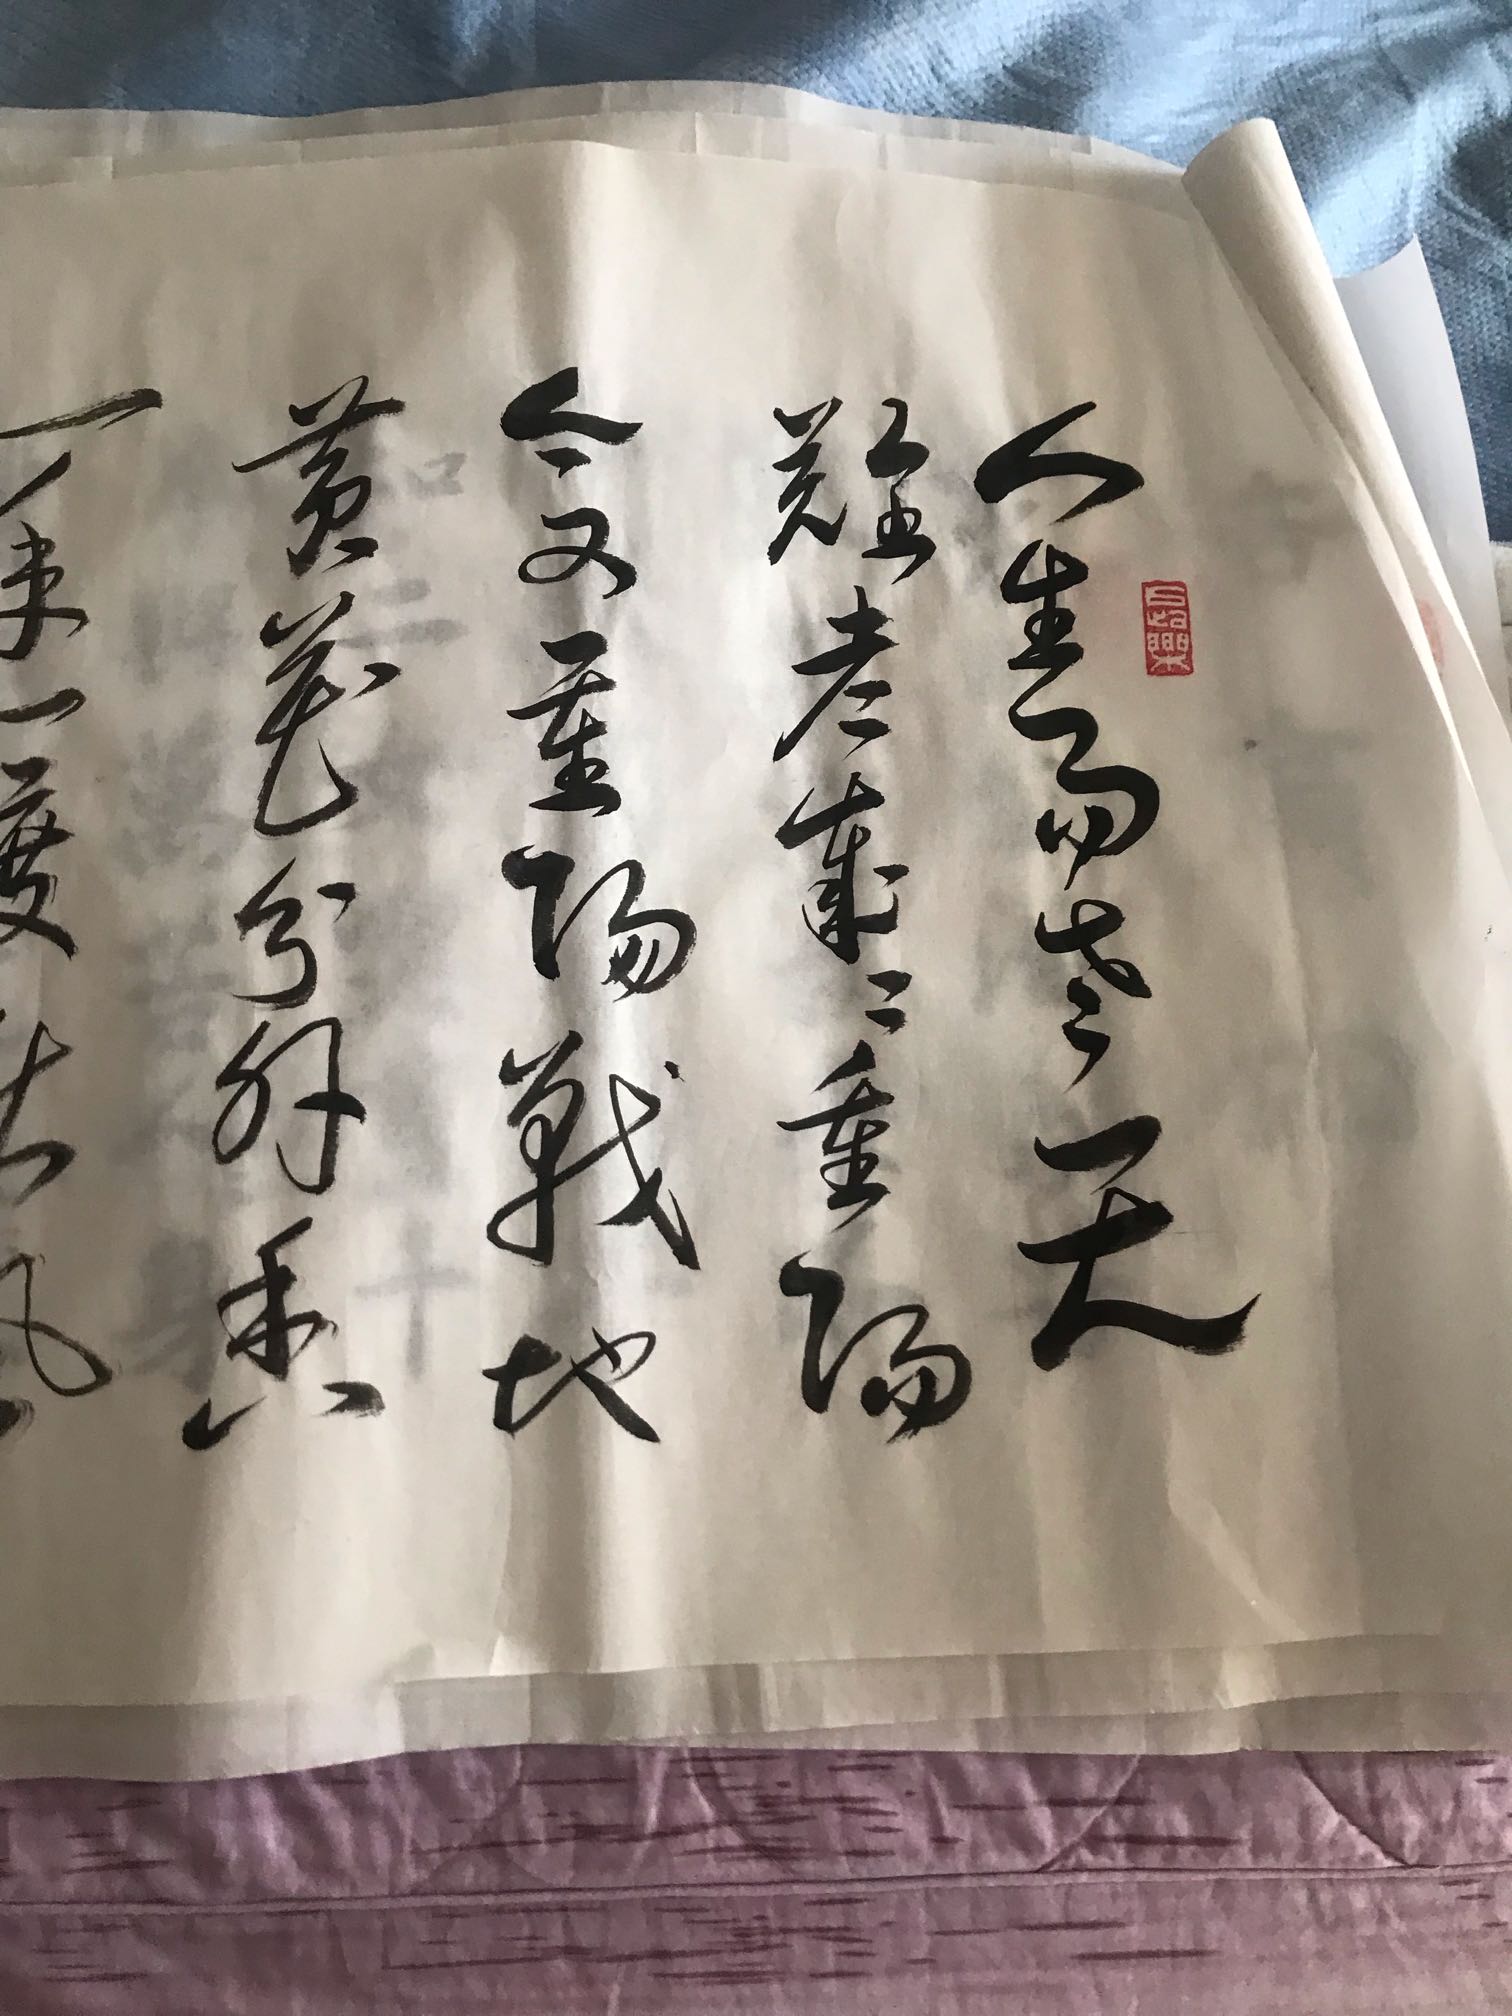 人生易老天
難老歲々重陽
今又重陽戰地
黄花分外香
一年一度秋風